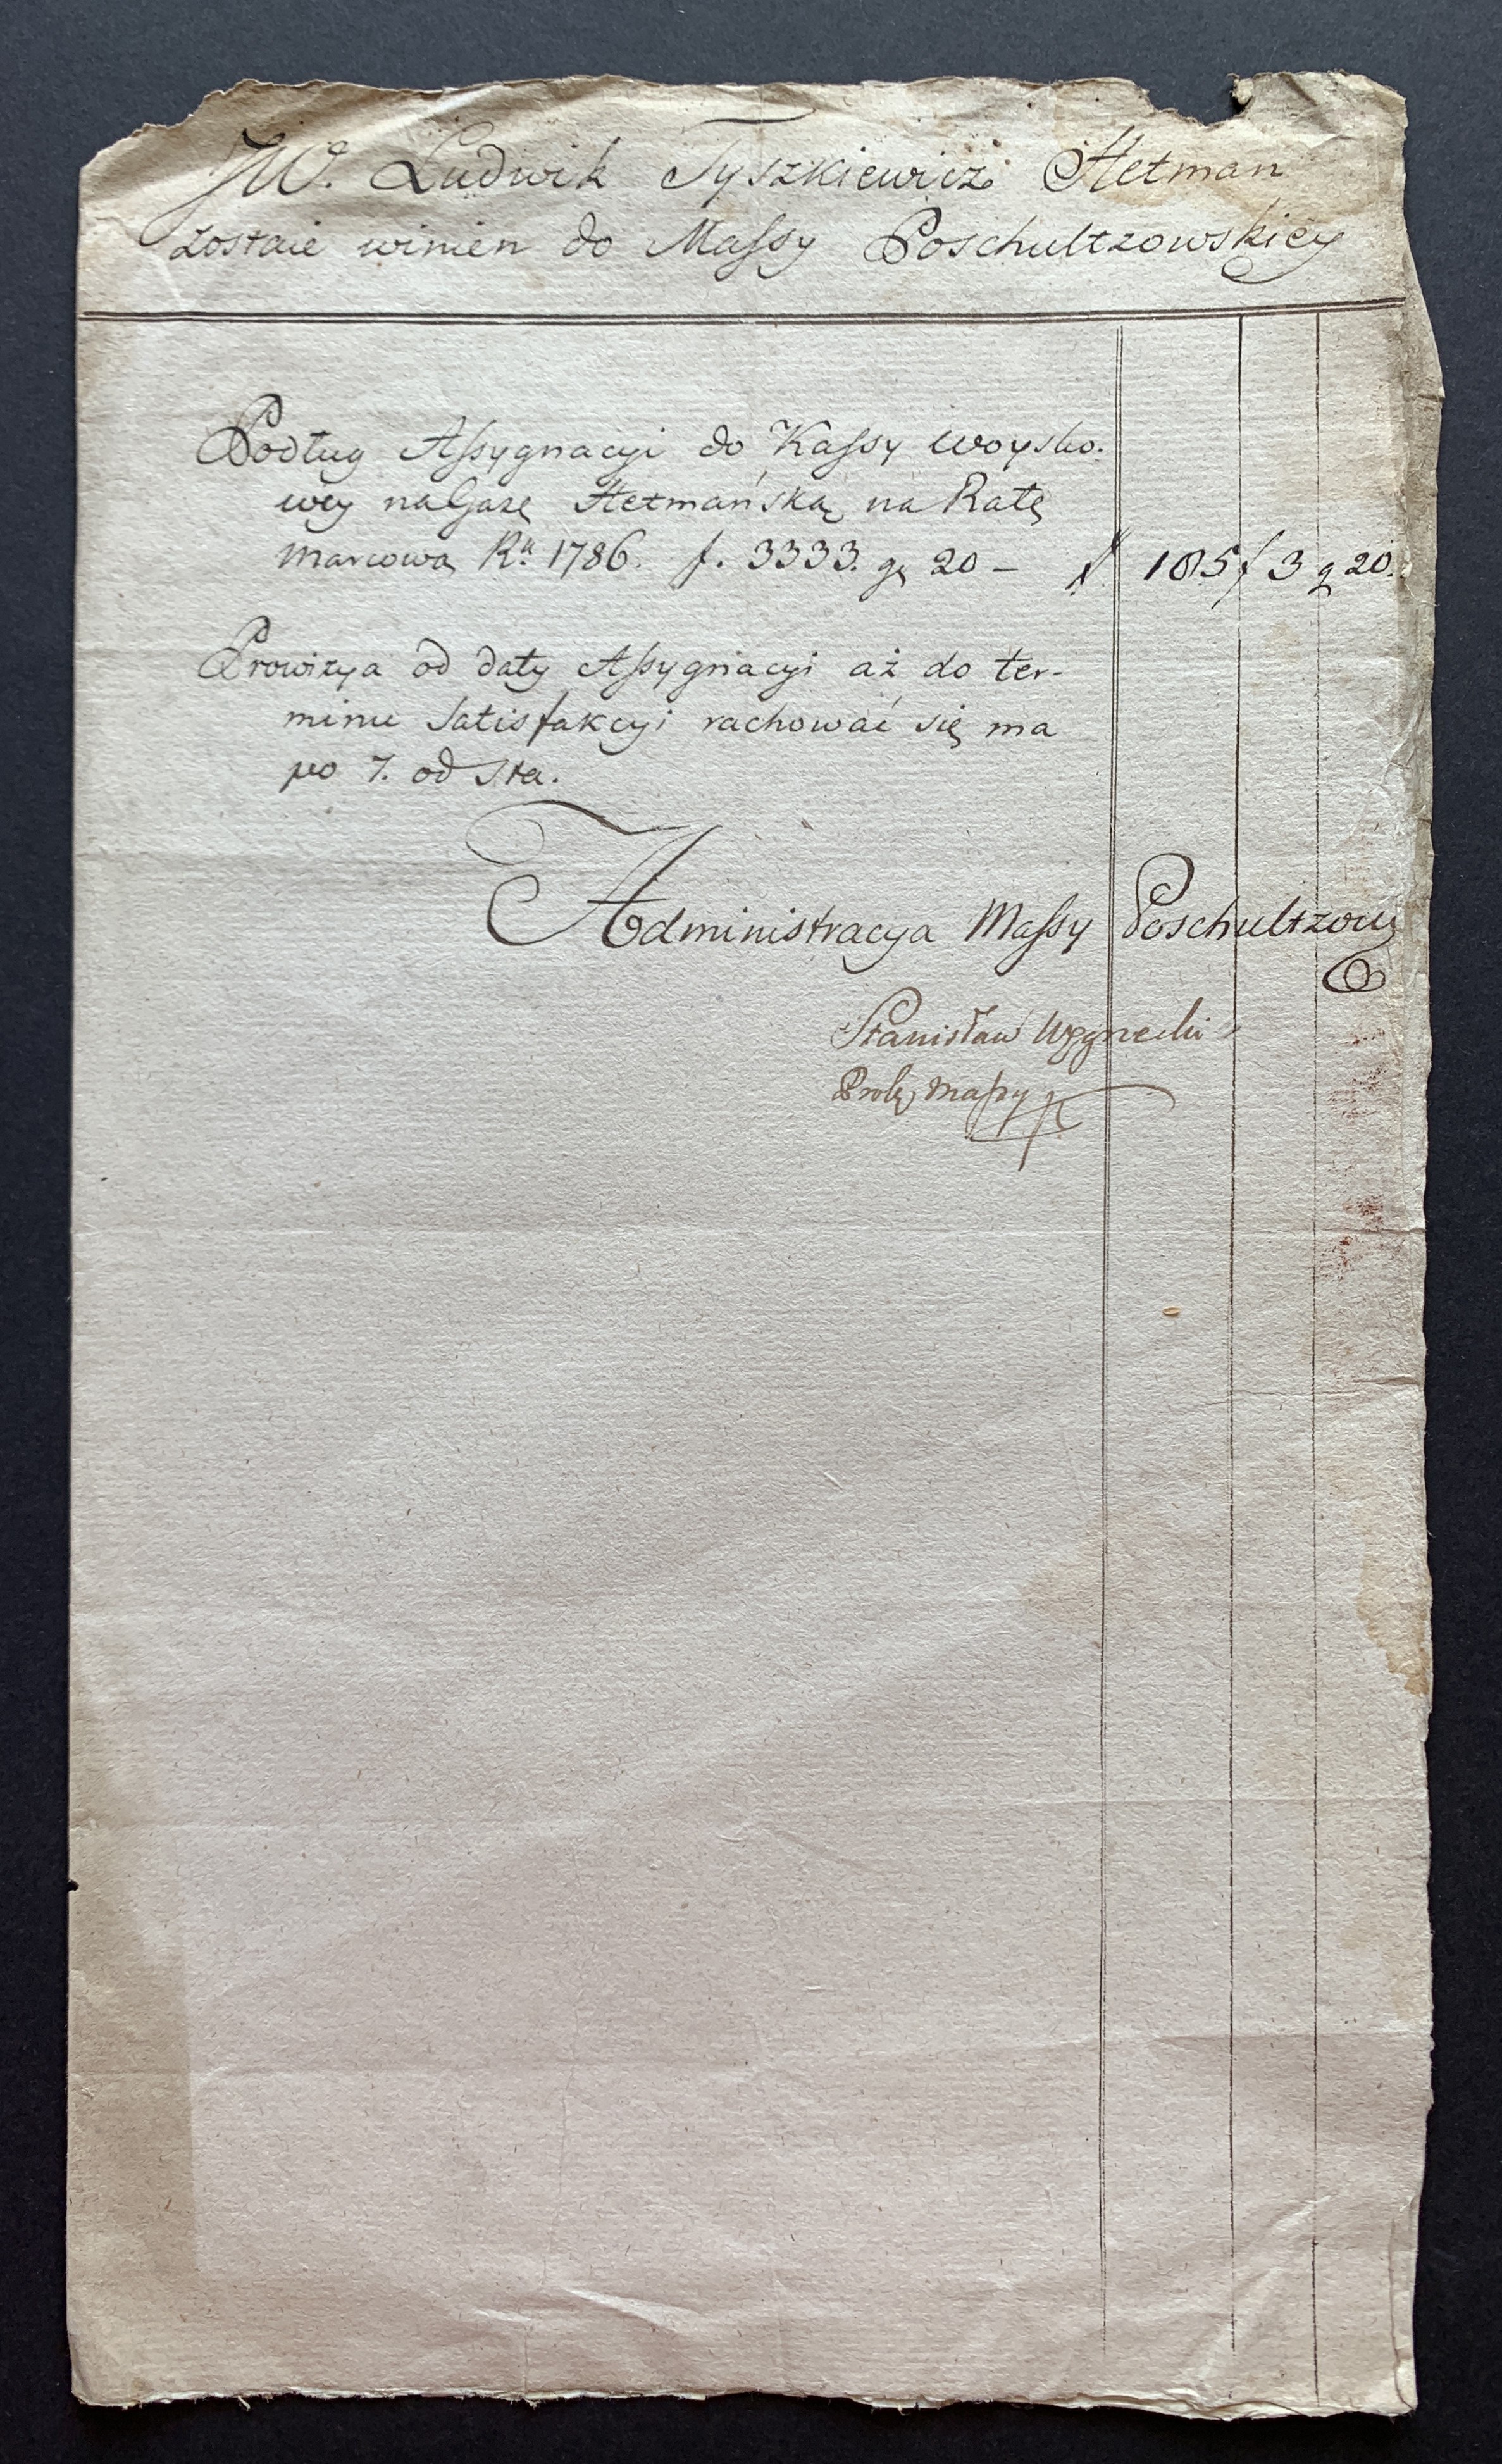 JW. Ludwik Tyszkiewicz Hetman
zostaie winien do Massy Poschultzowskiey
Podług Assygnacyi do Kassy woysko-
wey na Gażę Hetmańską na Ratę
Marcową Ru. 1786. f. 3333. gr 20 — # 185 f 3 g 20.
Prowizya od daty Assygnacyi aż do ter-
minu Satisfakcyi rachować się ma
po 7. od Sta.
Administracya Massy Poschultzow
Stanisław
Massy